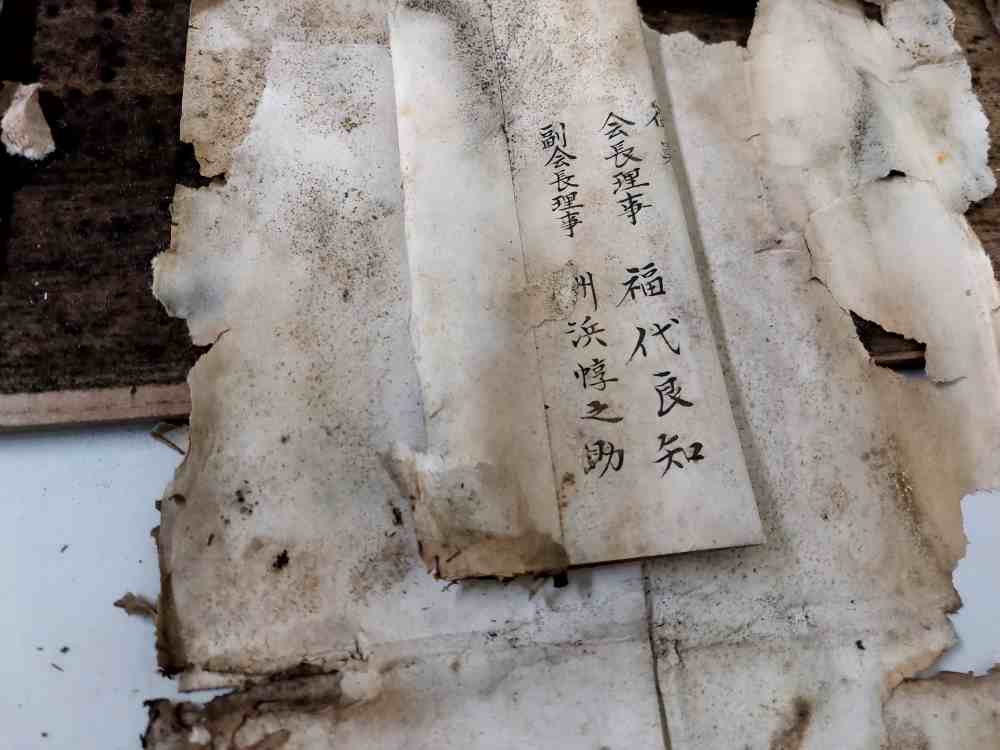 会長理事　福代良知
副会長理事　州浜惇之助